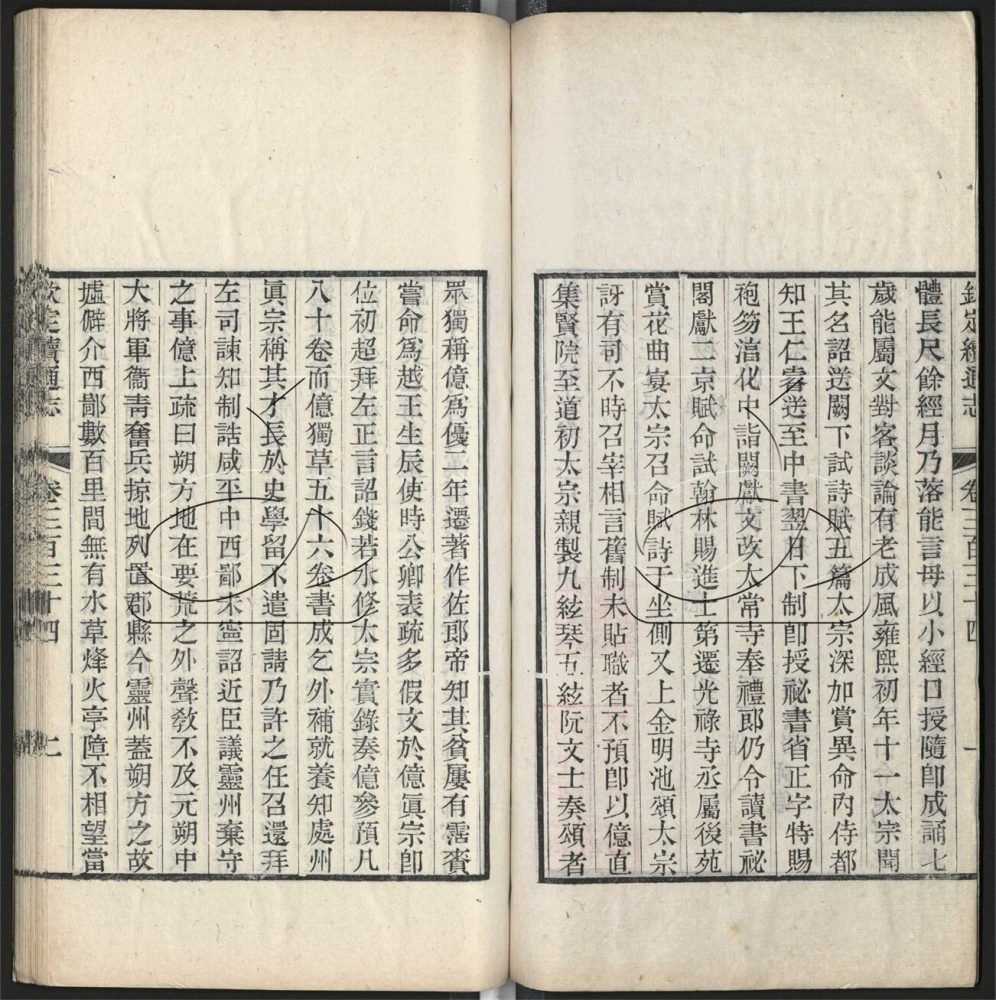 欽定續通志 卷三百三十四
體長尺餘經月乃落能言母以小經口授隨卽成誦七
歲能屬文對客談論有老成風雍熙初年十一太宗聞
其名詔送闕下試詩賦五篇太宗深加賞異命內侍都
知王仁睿送至中書翌日下制卽授祕書省正字特賜
袍笏淯化中詣闕獻文改太常寺奉禮郎仍令讀書祕
閣獻二京賦命試翰林賜進士第遷光祿寺丞屬後苑
賞花曲宴太宗召命賦詩于坐側又上金明池頌太宗
訝有司不時召宰相言舊制未貼職者不預卽以億直
集賢院至道初太宗親製九絃琴五絃阮文士奏頌者
眾獨稱億爲優二年遷著作佐郎帝知其貧屢有霑賚
嘗命爲越王生辰使時公卿表疏多假文於億眞宗卽
位初超拜左正言詔錢若水修太宗實錄奏億參預凡
八十卷而億獨草五十六卷書成乞外補就養知處州
眞宗稱其才長於史學留不遣固請乃許之任召還拜
左司諫知制誥咸平中西鄙未寧詔近臣議靈州棄守
之事億上疏曰朔方地在要荒之外聲敎不及元朔中
大將軍衞靑奮兵掠地列置郡縣今靈州蓋朔方之故
墟僻介西鄙數百里間無有水草烽火亭障不相望當
欽定續通志 卷三百三十四 七